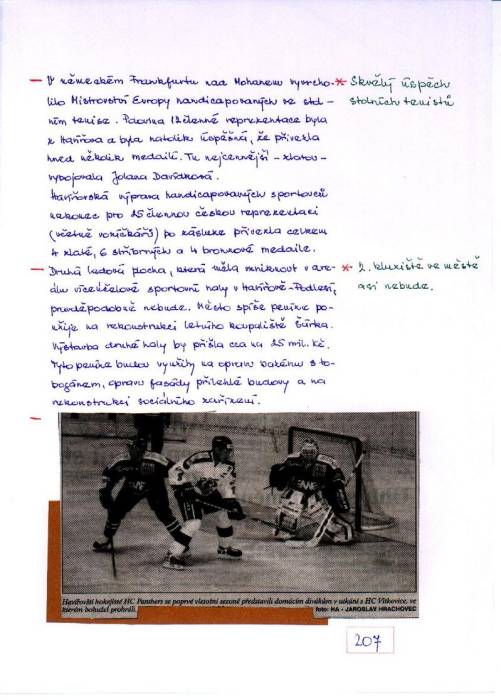 V německém Frankfurtu nad Mohanem vyvrcho-
lilo Mistrovství Evropy handicapovaných ve stol-
ním tenise. Polovina 12členné reprezentace byla
z Havířova a byla natolik úspěšná, že přivezla
hned několik medailí. Tu nejcennější - zlatou -
vybojovala Jolana Davídková.
Havířovská výprava handicapovaných sportovců
nakonec pro 25člennou českou reprezentaci
(včetně vozíčkářů) po zásluze přivezla celkem
4 zlaté, 6 stříbrných a 4 bronzové medaile.
* Skvělý úspěch
stolních tenistů
Druhá ledová plocha, která měla vzniknout v are-
álu víceúčelové sportovní haly v Havířově-Podlesí,
pravděpodobně nebude. Město spíše peníze po-
užije na rekonstrukci letního koupaliště Šárka.
Výstavba druhé haly by přišla cca na 25 mil. Kč.
Tyto peníze budou využity na opravu bazénu s to-
bogánem, opravu fasády přilehlé budovy a na
rekonstrukci sociálního zařízení.
* 2. kluziště ve městě
asi nebude.
Havířovští hokejisté HC Panthers se poprvé v letošní sezoně představili domácím divákům v utkání s HC Vítkovice, ve
kterém bohužel prohráli.
foto: HA - JAROSLAV HRACHOVEC
207